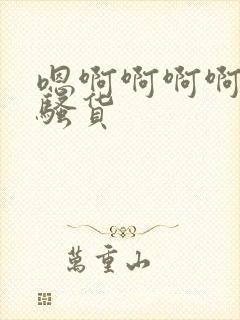 嗯啊啊啊啊
骚货
萬重山